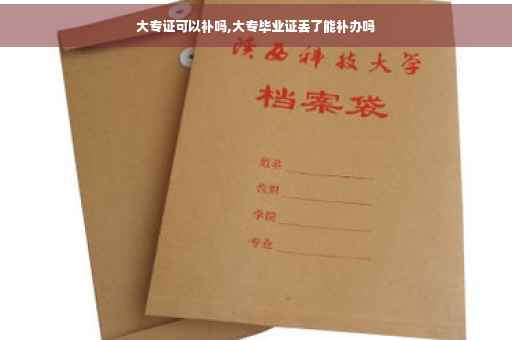 大专证可以补吗,大专毕业证丢了能补办吗
陕西科技大学
档案袋
姓名
学院
专业